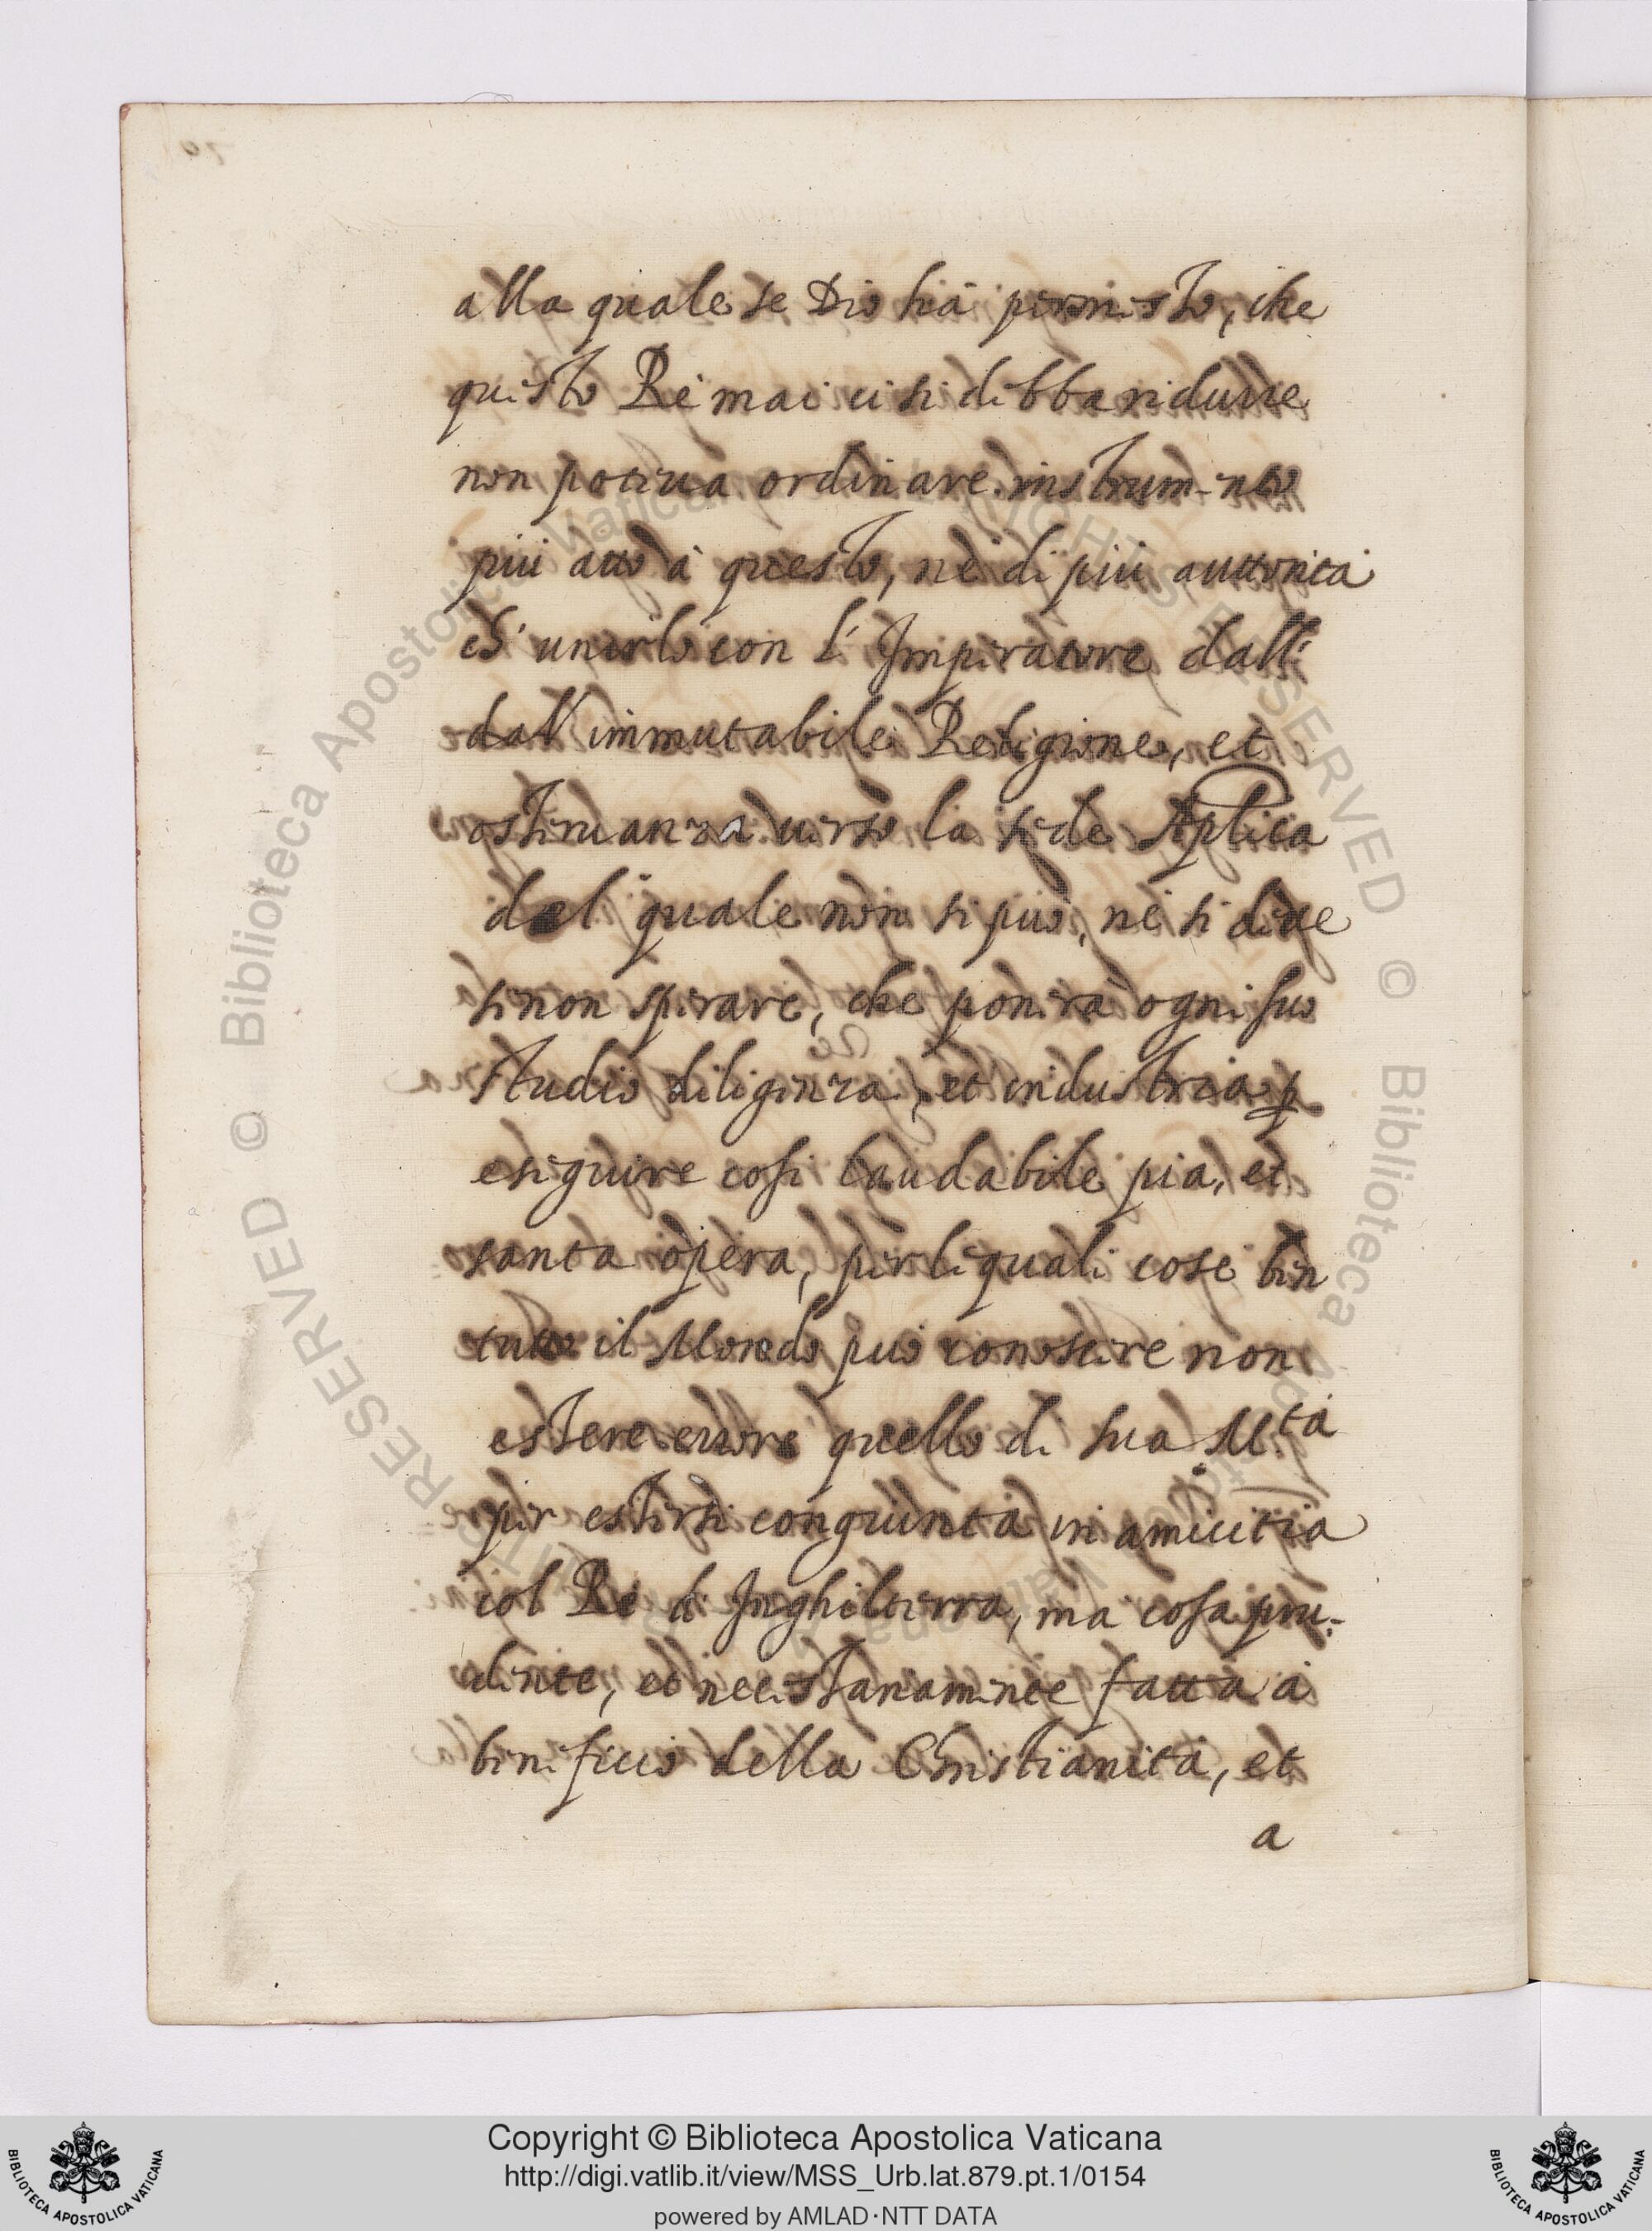 alla quale se Dio hà permesso, che
questo Rè mai ci si debba ridurre
non poteua ordinare instrumento
più atto à questo, nè di più auttorità
ch' unirlo con l' Imperatore dall'
dall' immutabile Religione, et
osseruanza uerso la sede Aplica
del quale non si può, nè si deue
se non sperare, che ponerà ogni suo
studio diligenza, et industria p
eseguire cosi laudabile pia, et
santa opera, per le quali cose ben
tutto il Mondo può conoscere non
essere errore quello di sua M.tà
per essersi congiunta in amicitia
col Rè d' Inghilterra, ma cosa pru=
dente, et necessariamente fatta à
beneficio della Christianità, et
a
Copyright © Biblioteca Apostolica Vaticana
http://digi.vatlib.it/view/MSS_Urb.lat.879.pt.1/0154
powered by AMLAD·NTT DATA
BIBLIOTECA APOSTOLICA VATICANA
BIBLIOTECA APOSTOLICA VATICANA